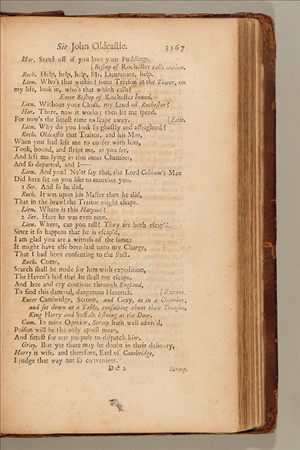 Sir John Oldcastle. 3267
Har. Stand off if you love your Puddings.
[Bishop of Rochester calls within.
Roch. Help, help, help, Mr. Lieutenant, help.
Lieu. Who's that within? some Treason in the Tower, on
my life, look in, who's that which calls?
Enter Bishop of Rochester bound.
Lieu. Without your Cloak, my Lord of Rochester?
Har. There, now it works; then let me speed,
For now's the fittest time to scape away. [Exit.
Lieu. Why do you look so ghastly and affrighted?
Roch. Oldcastle that Traitor, and his Man,
When you had left me to confer with him,
Took, bound, and stript me, as you see,
And left me lying in this inner Chamber,
And so departed, and I—
Lieu. And you! Ne'er say that, the Lord Cobham's Man
Did here set on you like to murther you.
1 Ser. And so he did.
Roch. It was upon his Master then he did,
That in the brawl the Traitor might escape.
Lieu. Where is this Harpool?
2 Ser. Here he was even now.
Lieu. Where, can you tell? They are both escap'd.
Since it so happens that he is escap'd,
I am glad you are a witness of the same:
It might have else been laid unto my Charge,
That I had been consenting to the Fact.
Roch. Come,
Search shall be made for him with expedition,
The Haven's laid that he shall not escape,
And hue and cry continue through England,
To find this damned, dangerous Heretick. [Exeunt.
Enter Cambridge, Scroop, and Gray, as in a Chamber,
and set down at a Table, consulting about their Treason,
King Harry and Suffolk listning at the Door.
Cam. In mine Opinion, Scroop hath well advis'd,
Poison will be the only aptest mean,
And fittest for our purpose to dispatch him.
Gray. But yet there may be doubt in their delivery,
Harry is wise, and therefore, Earl of Cambridge,
I judge that way not so convenient.
D d 2 Scroop.